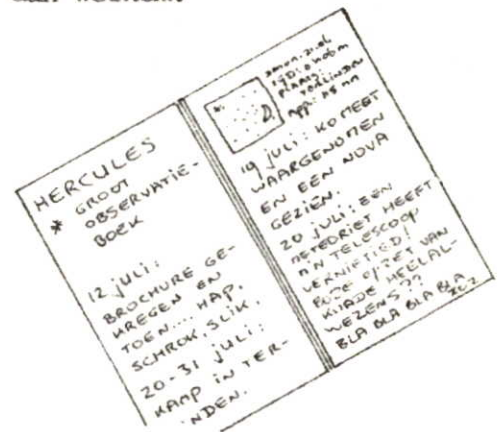 HERCULES
* GROOT
OBSERVATIE-
BOEK
12 juli:
BROCHURE GE-
KREGEN EN
TOEN.... HAP,
SCHROK, SLIK.
20-31 juli:
KAMP IN TER-
NDEN.
PLAATS:
TERLINDEN
19 juli: KOMEET
WAARGENOMEN
EN EEN NOVA
GEZIEN.
20 JULI: EEN
METEORIET HEEFT
M'N TELESCOOP
VERNIETIGD!
OPZET VAN
KWADE HEELAL-
WEZENS??
BLA BLA BLA BLA